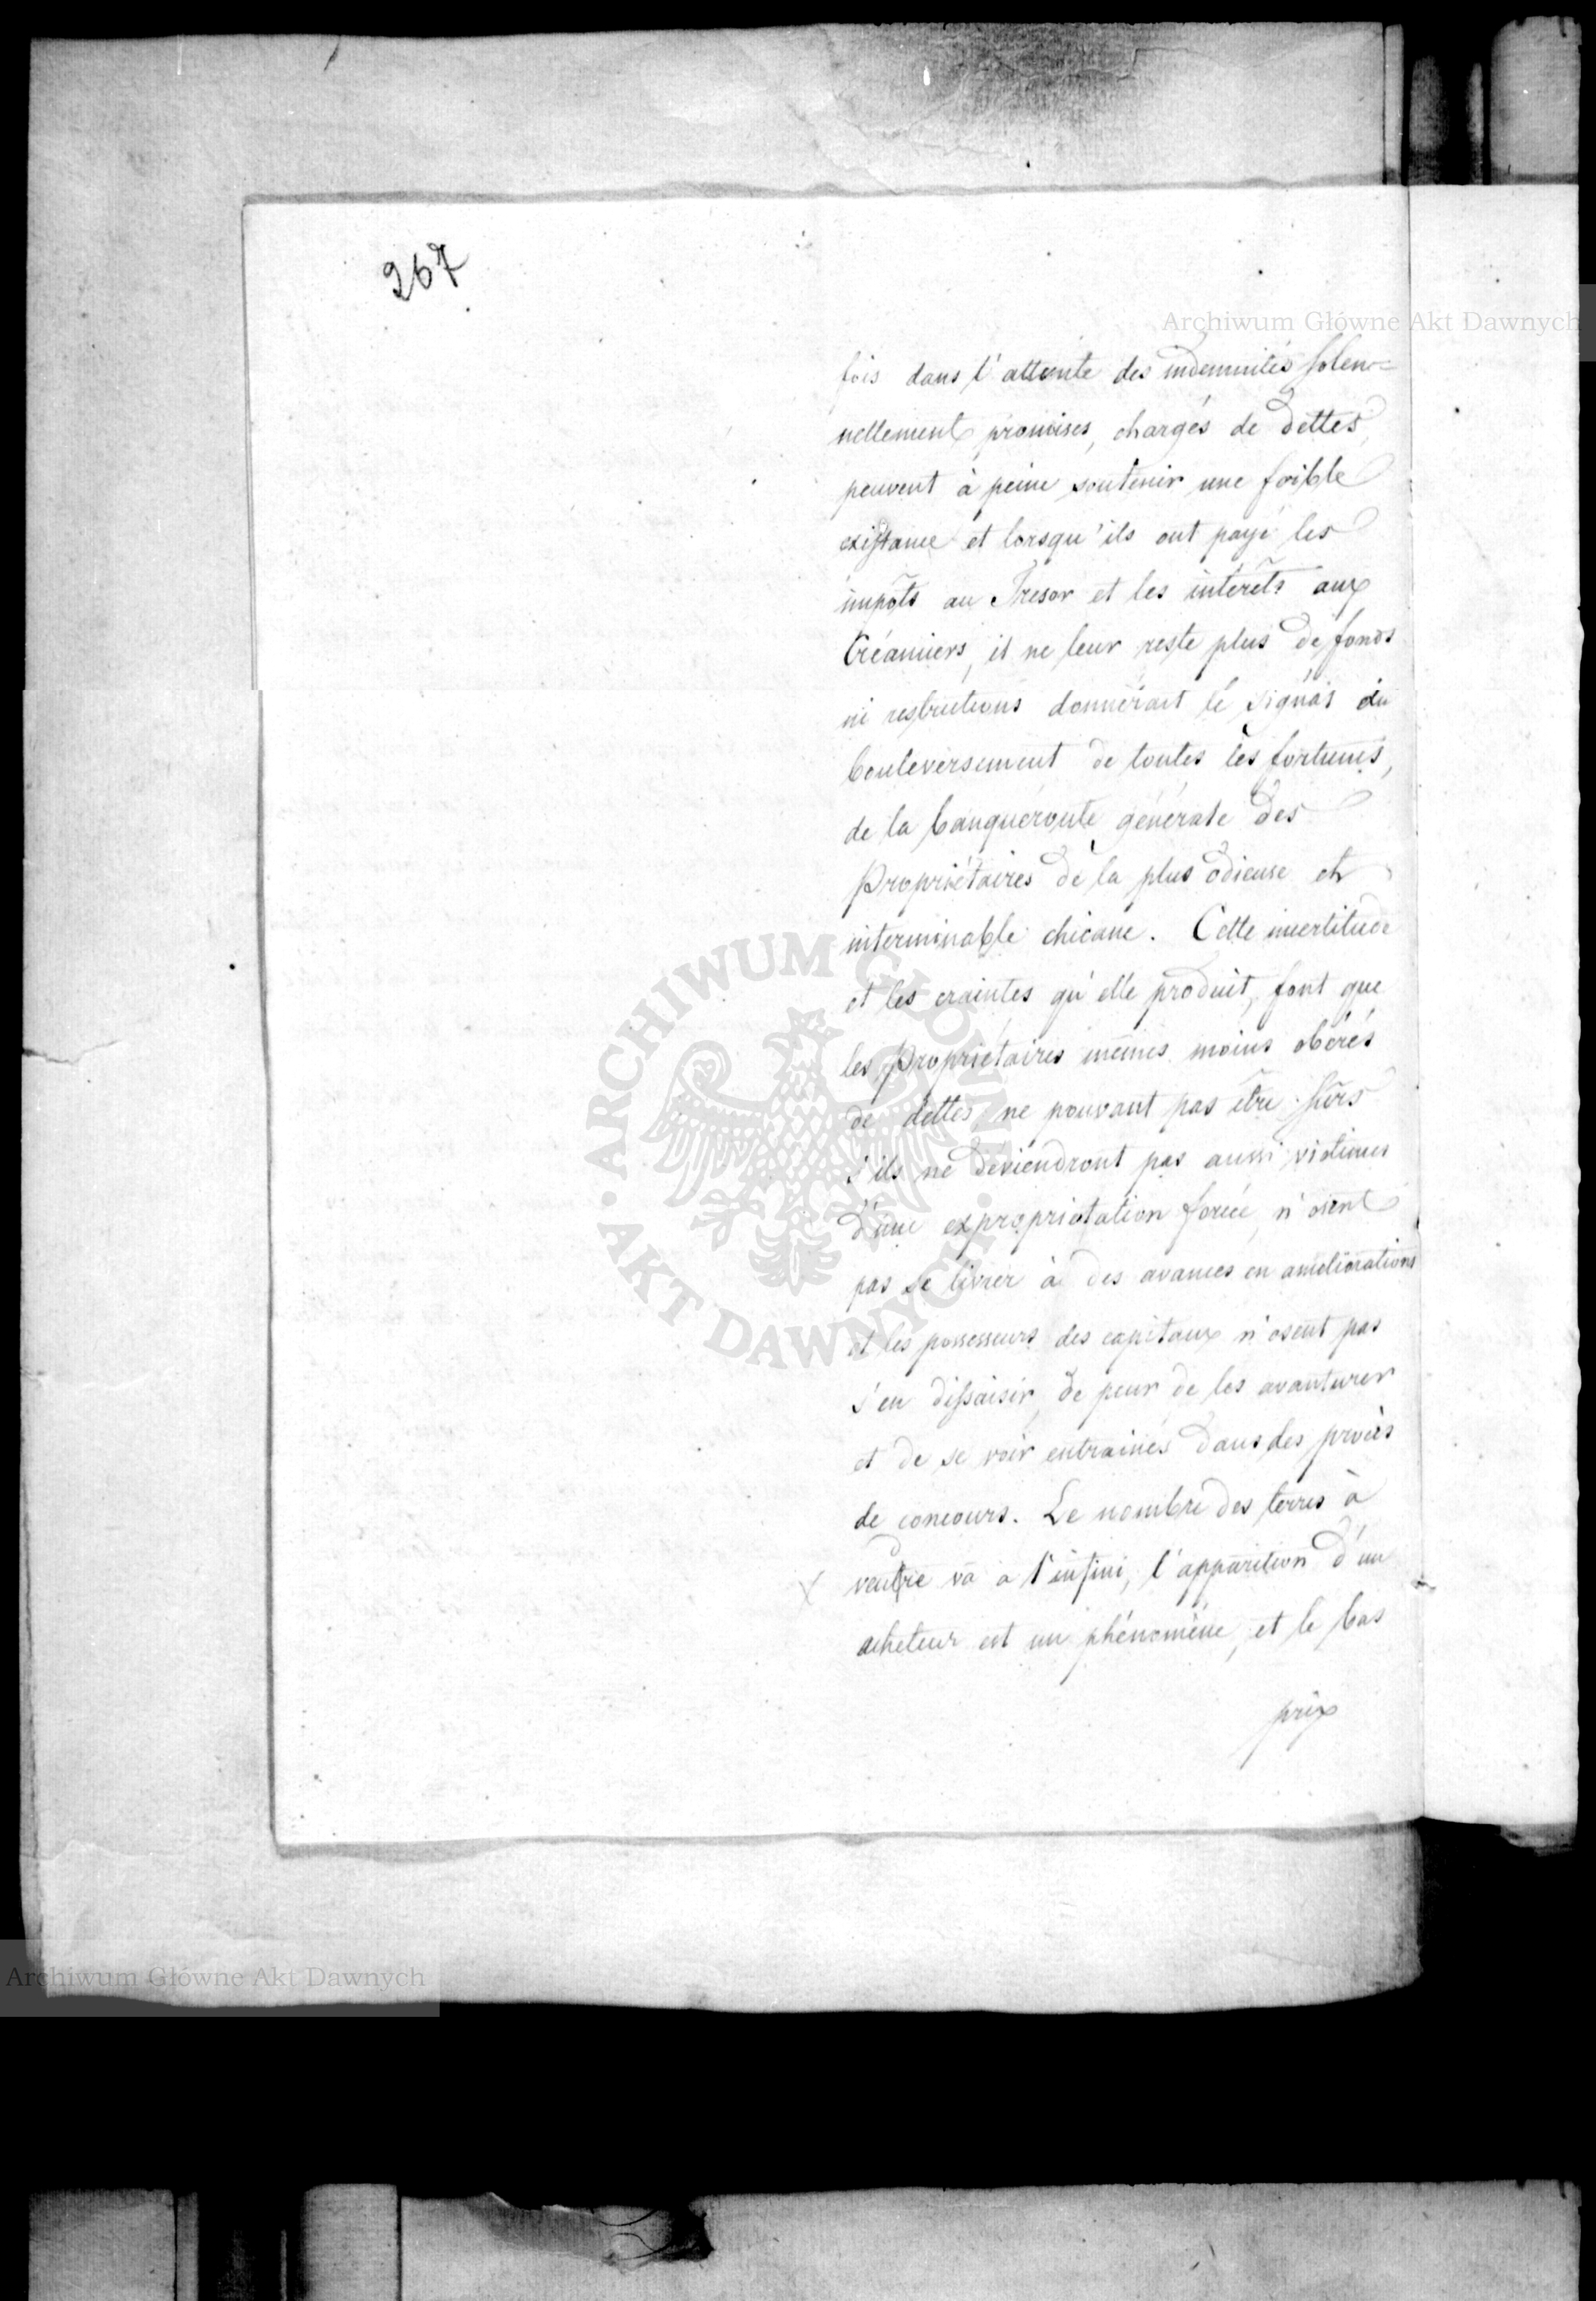 267
Archiwum Główne Akt Dawnych
fois dans l'attente des indemnités solen=
nellement promises, chargés de dettes
peuvent à peine soutenir une foible
existance et lorsqu'ils ont payé les
impôts au Tresor et les interêts aux
Créanciers, il ne leur reste plus de fonds
ni restrictions donnerait le signal du
bouleversement de toutes les fortunes,
de la banqueroute générale des
Propriétaires de la plus odieuse et
interminable chicane. Cette incertitude
et les craintes qu'elle produit, font que
les Propriétaires mêmes moins obérés
de dettes, ne pouvant pas être sûrs
s'ils ne deviendront pas aussi victimes
d'une expropriatation forcée, n'osent
pas se livrer à des avances en améliorations
et les possesseurs des capitaux n'osent pas
s'en dissaisir, de peur de les avanturer
et de se voir entrainés dans des procès
de concours. Le nombre des terres à
vendre va a l'infini, l'apparition d'un
acheteur est un phénomène, et le bas
prix
ARCHIWUM GŁÓWNE AKT DAWNYCH
Archiwum Główne Akt Dawnych